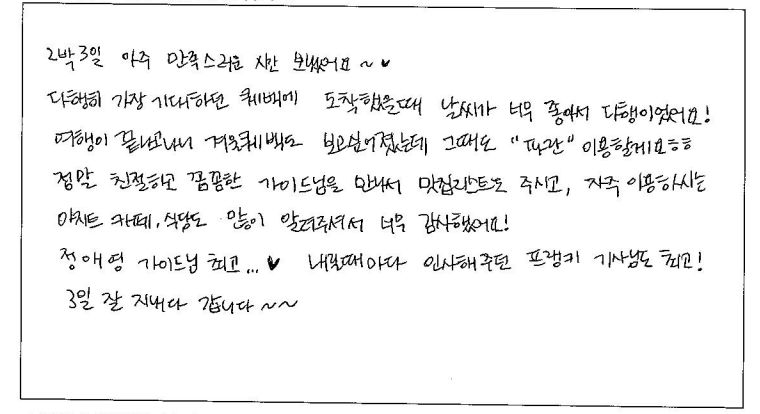 2박3일 아주 만족스러운 시간 보냈어요~♥
다행히 가장 기대하던 퀘벡에 도착했을때 날씨가 너무 좋아서 다행이었어요!
여행이 끝나고나니 겨울퀘벡도 보고싶어졌는데 그때도 "파란" 이용할게요ㅎㅎ
정말 친절하고 꼼꼼한 가이드님을 만나서 맛집리스트도 주시고, 자주 이용하시는
아지트 카페, 식당도 많이 알려주셔서 너무 감사했어요!
정애영 가이드님 최고...♥ 내릴때마다 인사해주던 프랭키 기사님도 최고!
3일 잘 지내다 갑니다~~